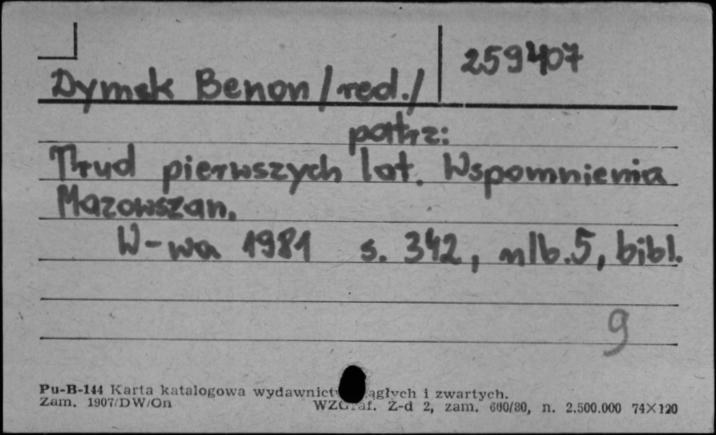 259407
Dymek Benon /red./
patrz:
Trud pierwszych lat. Wspomnienia
Mazowszan.
W-wa 1981 s. 342, nlb. 5, bibl.
9
Pu-B-144 Karta katalogowa wydawnictw ciągłych i zwartych.
Zam. 1907/DW/On WZGraf. Z-d 2, zam. 600/80, n. 2.500.000 74×120